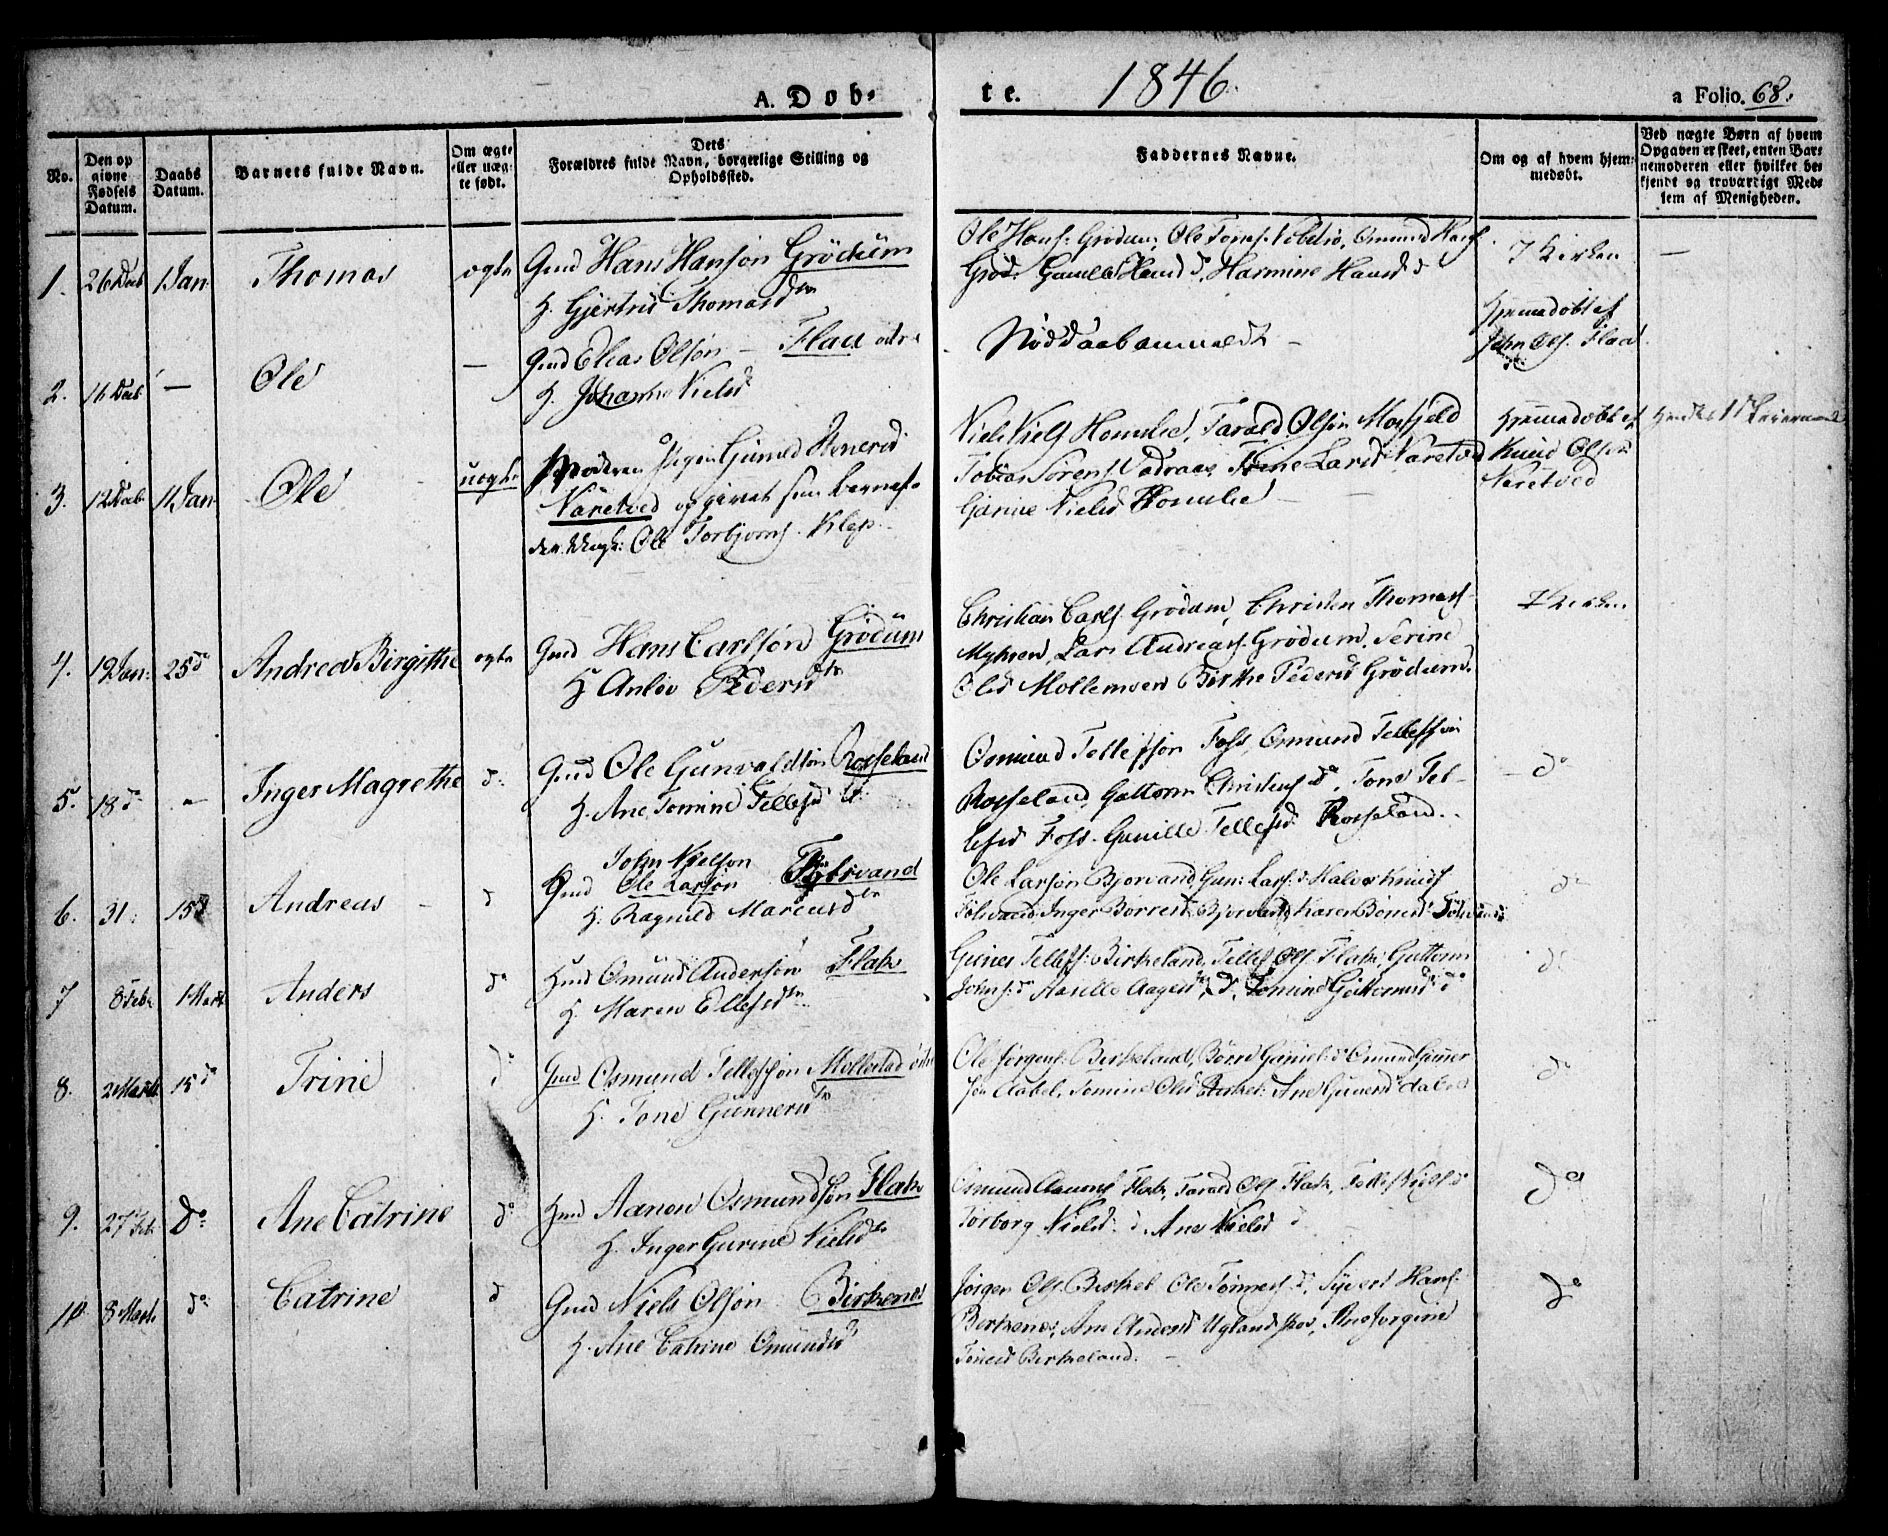 A. Døb-
te.
1846.
a Folio. 68.
No.
Den op
givne
Fødsels
Datum.
Daabs
Datum.
Barnets fulde Navn.
Om ægte
eller uæg-
te født.
Dets
Forældres fulde Navn, borgerlige Stilling og
Opholdssted.
Faddernes Navne.
Om og af hvem hjem-
medøbt.
Ved uægte Børn af hvem
Opgaven er skeet, enten Bar-
nemoderen eller hvilket be-
kjendt og troværdigt Med-
lem af Menigheden.
1. 26 Decb 1 Jan Thomas ægte Gmd Hans Hansøn Grödum
H. Gjertrud Thomasdtr
Ole Hans: Grødum, Ole Toms: Omund Hans
Grød: Gunild Hansd do, Harmine Hansd do
I Kirken —
2. 16 Decb — Ole — Gmd Elias Olsøn — Flaa
H. Johanne Nielsd
Nöddaab anmeldt —
Hjemmedøbt af
John Ols. Flaa
3. 12 Decb 11 Jan Ole uægte Moderen Pigen Gunild
Naretved opgivet som Barnef-
der: Ole Torbjorns. Klep
Niels Niels Homelie, Tarald Olsøn Mosfjeld
Tobias Sørens Trine Larsd Naretved
Gurine Nielsd Homelie —
Hjemmedøbt af
Knud Olsen
Naretved
4. 19 Jan: 25 do Andrea Birgithe ægte Gmd Hans Carlsøn Grödum
H Anlov Pedersdtr
Christian Carls. Grödum, Christen Thomas-
Myhren, Lars Andreas. Grödum, Serine
Olsd Mollemoen Birthe Pedersd Grödum.
I Kirken
5. 18 do — Inger Magrethe do Gmd Ole Gunvaldsøn Rosseland
H. Ane Tomine Tellefsd
Osmund Tellefsøn Foss, Osmund Tellefsøn
Rosseland, Guttorm Christens do, Tone Tel-
lefsd Foss. Gunille Tellefsd Rosseland.
— do
6. 31. 15 Andreas — do Gmd John Nielsøn
Ole Larsøn
H. Ragnild Marcusdtr
Ole Larsøn Bjorvand, Gun: Lars: do Halvor Knuds
Inger Børresd Bjorvand Karen
do
7 8 Febr 1 Marts Anders do Gmd Osmund Andersøn Flak
H. Maren Ellefsdtr
Gunes Tellefs: Birkeland, Tellef Ols Flak, Guttorm
Johns: do Aaselle Aagesd, do, Tomine Guttormsd do
do
8. 2 Marts 15 do Trine do Gmd Osmund Tellefsøn Mollestad
H. Tone Gunnersdtr
Ole Jørgens: Birkeland, Børre Daniel: do Osmund Gunner
søn Aabel, Tomine Olsd Birkel: Ane Gunersd
do
9. 27 Feb: do Ane Catrine do Gmd Aanon Osmundsøn Flak
H. Inger Gurine Nielsdtr
Osmund Aanons Flak, Tarald Ols Flak, Niels do
Torborg Nielsd do, Ane Nielsd do
do
10 8 Marts do Catrine do Gmd Niels Olsøn Birkenes
H. Ane Catrine Omundsd
Jørgen Ols Birkel Ole Tønnes do, Syvert Hans.
Birkenes, Ane Andersd Uglandskov, Ane Jorgine
Tønesd Birkeland. —
do